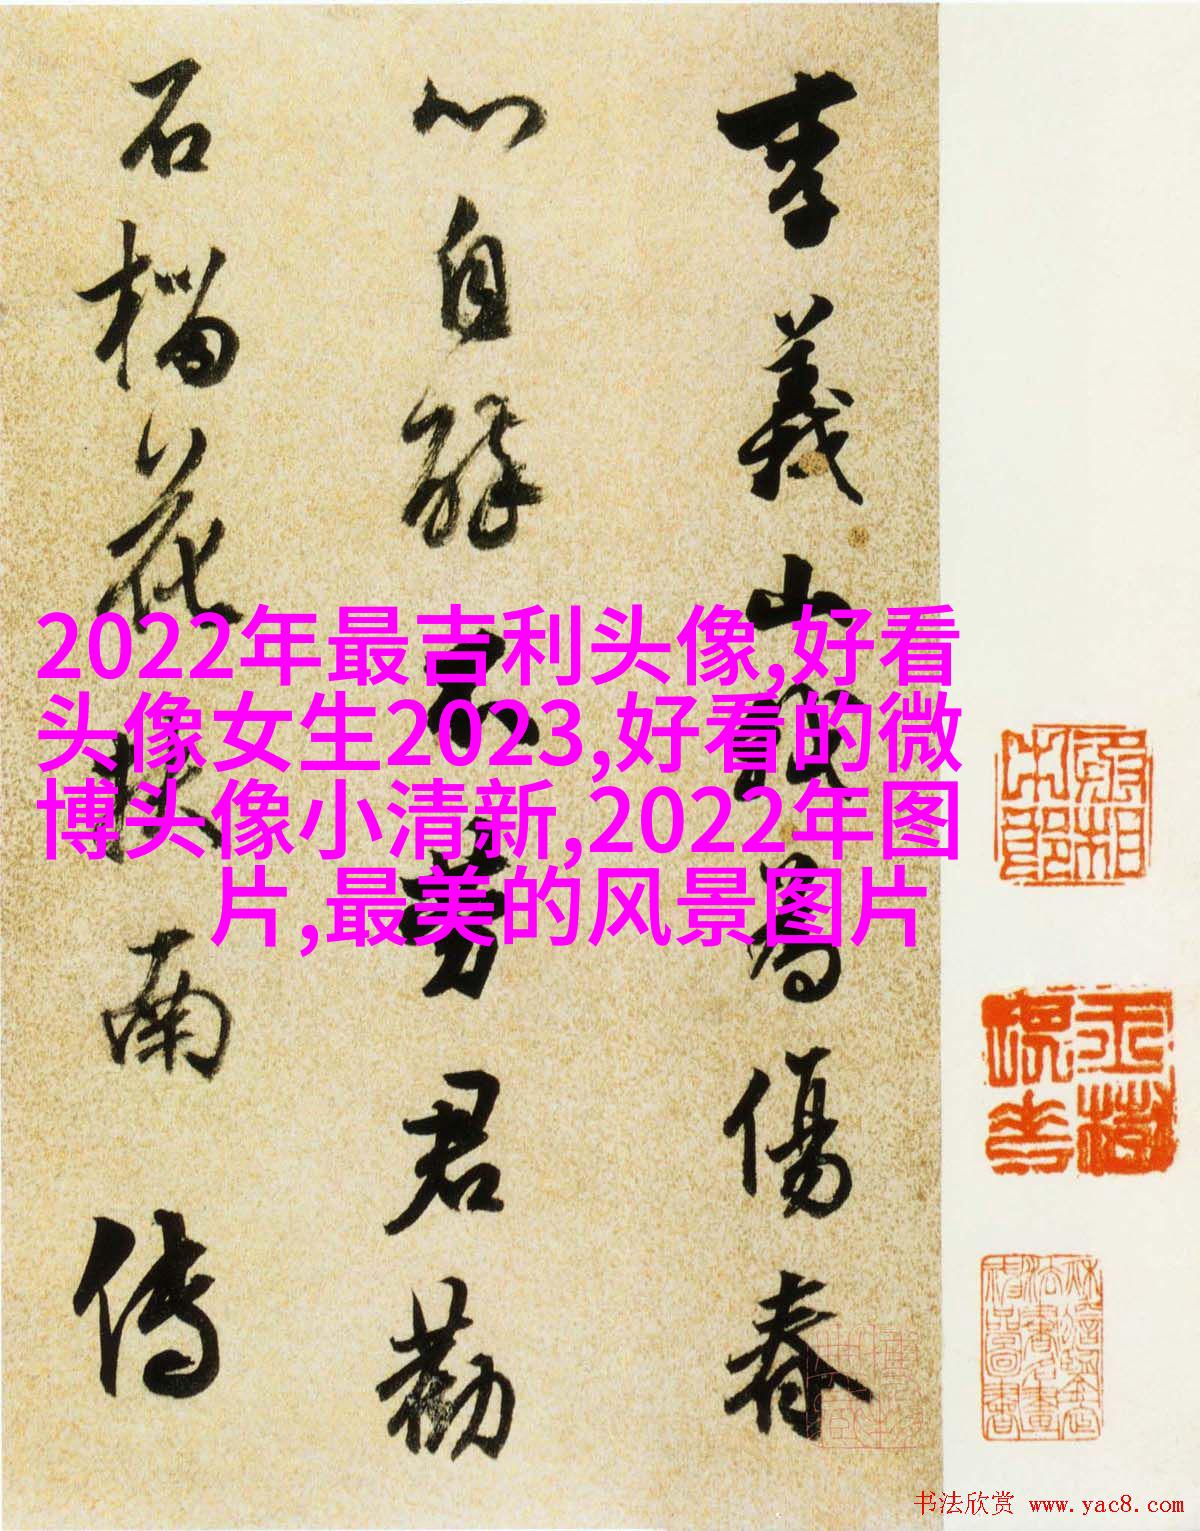 李義山詩為傷春
心自醉不勞君勸
石榴花映南傳
2022年最吉利头像,好看
头像女生2023,好看的微
博头像小清新,2022年图
片,最美的风景图片
书法欣赏 www.yac8.com